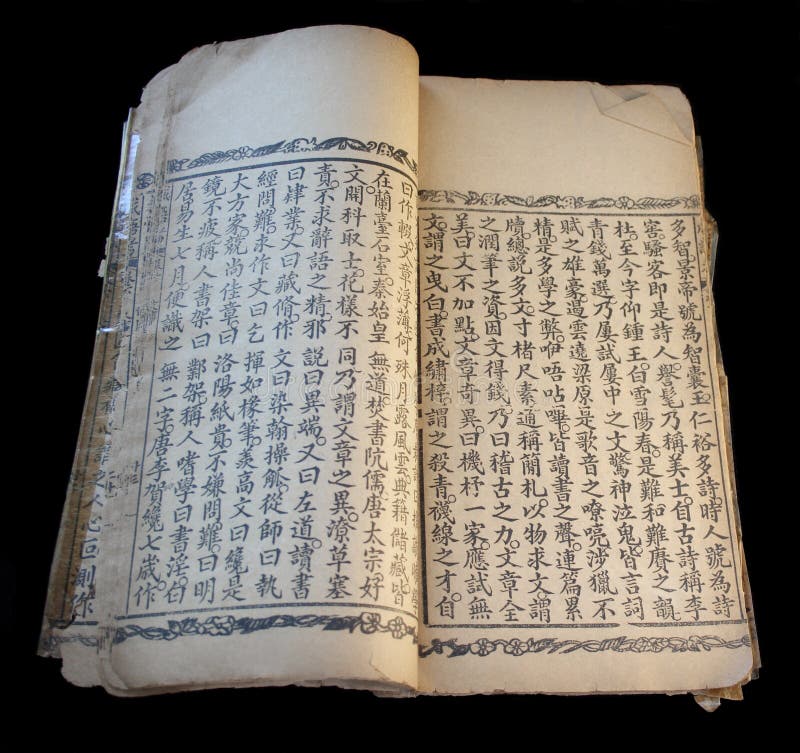 多智景帝號為智囊王仁裕多詩時人號為詩
窖騷客即是詩人譽髦乃稱美士自古詩稱李
杜至今字仰鍾王白雪陽春是難和難賡之韻
青錢萬選乃屢試屢中之文驚神泣鬼皆言詞
賦之雄豪遏雲遶梁原是歌音之嘹喨涉獵不
精是多學之弊咿唔呫嗶皆讀書之聲連篇累
牘總說多文寸楮尺素通稱簡札以物求文謂
之潤筆之資因文得錢乃曰稽古之力文章全
美曰文不加點文章奇異曰機杼一家應試無
文謂之曳白書成繡梓謂之殺青襪線之才自
曰作輟文章浮薄何殊月露風雲典籍儲藏皆
在蘭臺石室秦始皇無道焚書阬儒唐太宗好
文開科取士花樣不同乃謂文章之異潦草塞
責不求辭語之精邪說曰異端又曰左道讀書
曰肄業又曰藏脩作文曰染翰操觚從師曰執
經問難求作文曰乞揮如椽筆羨高文曰纔是
大方家競尚佳章曰洛陽紙貴不嫌問難曰明
鏡不疲稱人書架曰鄴架稱人嗜學曰書淫白
居易生七月便識之無二字唐李賀纔七歲作